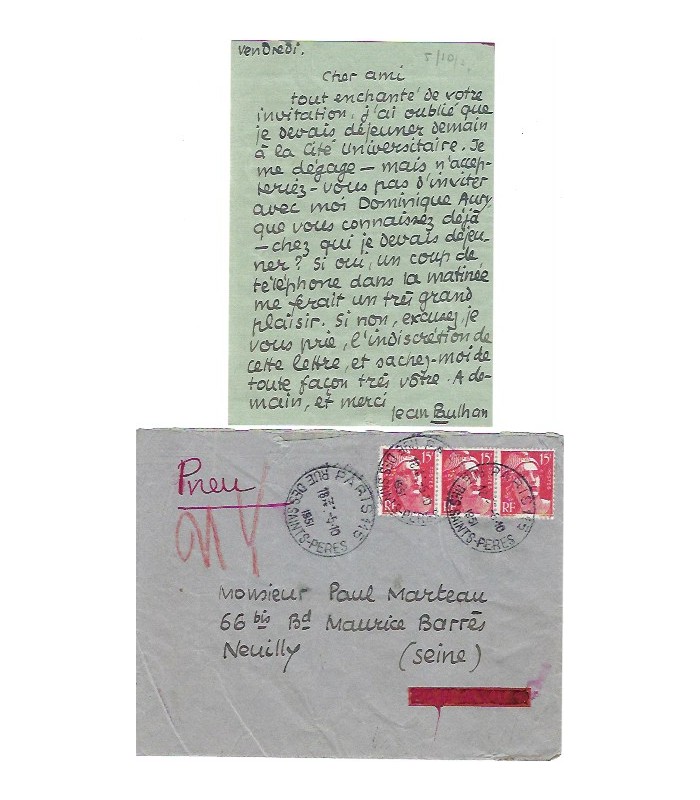 vendredi.
5/10/
Cher ami
tout enchanté de votre
invitation, j'ai oublié que
je devais déjeuner demain
à la Cité Universitaire. Je
me dégage — mais n'accep-
teriez-vous pas d'inviter
avec moi Dominique Aury
que vous connaissez déjà
— chez qui je devais déjeu-
ner? Si oui, un coup de
téléphone dans la matinée
me ferait un très grand
plaisir. Si non, excusez, je
vous prie, l'indiscrétion de
cette lettre, et sachez-moi de
toute façon très vôtre. A de-
main, et merci
Jean Paulhan
Pneu
PARIS 115
1951
RUE DES SAINTS-PERES
15F
RF
15F
15F
RF
Monsieur Paul Marteau
66 bis Bd Maurice Barrès
Neuilly (Seine)